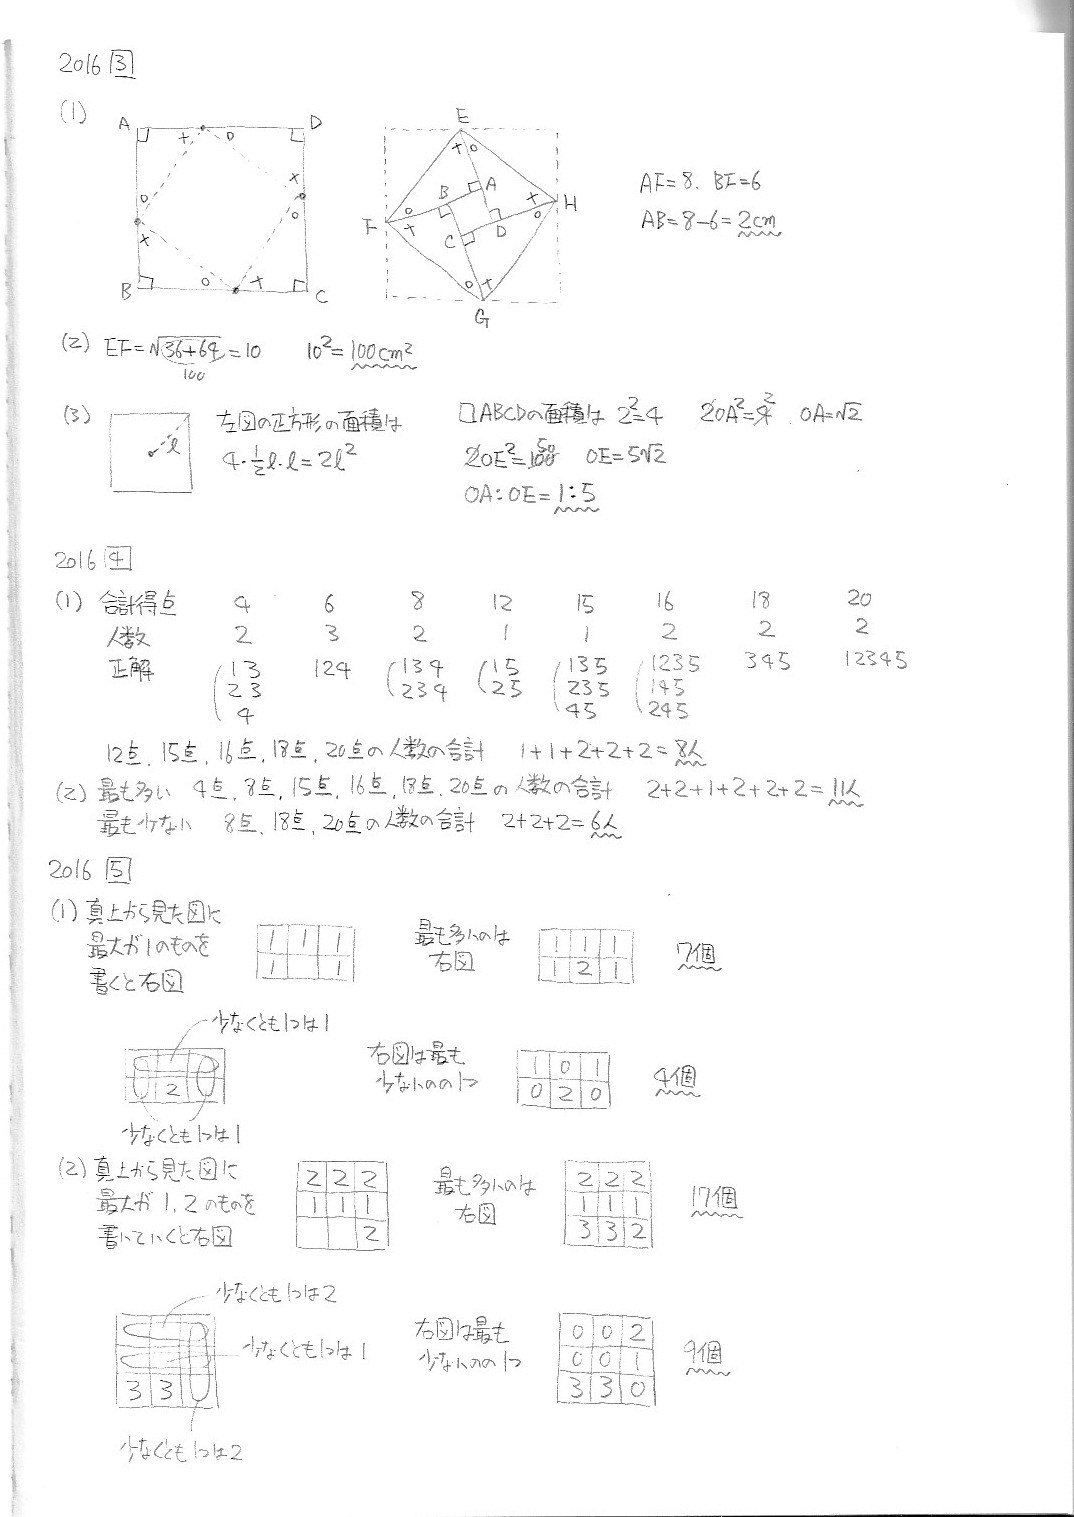 2016 3
(1)
A D
× ○
×
○ ○
×
○ ×
B C
E
× ○
A
B × H
F ○ ○
× C D
○ ×
G
AF=8. BF=6
AB=8-6=2cm
(2) EF=√36+64=10 10²=100cm²
100
(3) 左図の正方形の面積は
ℓ
4・1/2ℓ・ℓ=2ℓ²
□ABCDの面積は 2²=4 2OA²=4 2 OA=√2
2OE²=100 50 OE=5√2
OA:OE=1:5
2016 4
(1) 合計得点 4 6 8 12 15 16 18 20
人数 2 3 2 1 1 2 2 2
正解 13 124 134 15 135 1235 345 12345
23 234 25 235 145
4 45 245
12点, 15点, 16点, 18点, 20点の人数の合計 1+1+2+2+2=8人
(2) 最も多い 4点, 8点, 15点, 16点, 18点, 20点の人数の合計 2+2+1+2+2+2=11人
最も少ない 8点, 18点, 20点の人数の合計 2+2+2=6人
2016 5
(1) 真上から見た図に
最大が1のものを
書くと右図
1 1 1
1 1
最も多いのは
右図
1 1 1
1 2 1
7個
少なくとも1つは1
2
少なくとも1つは1
右図は最も
少ないのの1つ
1 0 1
0 2 0
4個
(2) 真上から見た図に
最大が1,2のものを
書いていくと右図
2 2 2
1 1 1
2
最も多いのは
右図
2 2 2
1 1 1
3 3 2
17個
少なくとも1つは2
少なくとも1つは1
3 3
少なくとも1つは2
右図は最も
少ないのの1つ
0 0 2
0 0 1
3 3 0
9個